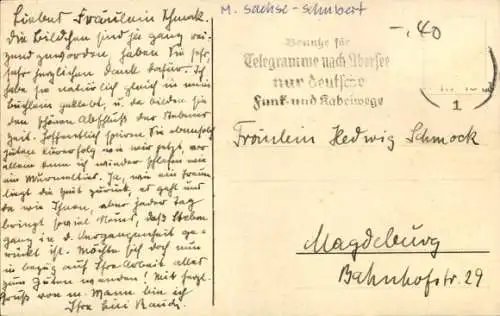 Liebes Fräulein Schmock.
Die Bildchen sind ja ganz rei-
zend geworden, haben Sie sehr,
sehr herzlichen Dank dafür. Ich
habe sie natürlich gleich in mein
büchlein geklebt, u. da bilden sie
den schönen Abschluß der
Zeit. Hoffentlich spüren Sie ebensolch
guten Kurerfolg wie wir jetzt, vor
allem kann ich wieder schlafen wie
ein Murmeltier. Ja, wie ein Traum
liegt die Zeit zurück, es geht uns
da wie Ihnen, aber jeder Tag
bringt soviel Neues, daß
ganz in d. Vergangenheit ge-
rückt ist. Möchte sich doch nun
in bezug auf Ihre Arbeit alles
zum Guten wenden! Mit herzl.
Gruß von m. Mann bin ich
Ihre
M. Sachse-Schubert
-.40
Benutze für
Telegramme nach Übersee
nur deutsche
Funk- und Kabelwege
1
Fräulein Hedwig Schmock
Magdeburg
Bahnhofstr. 29